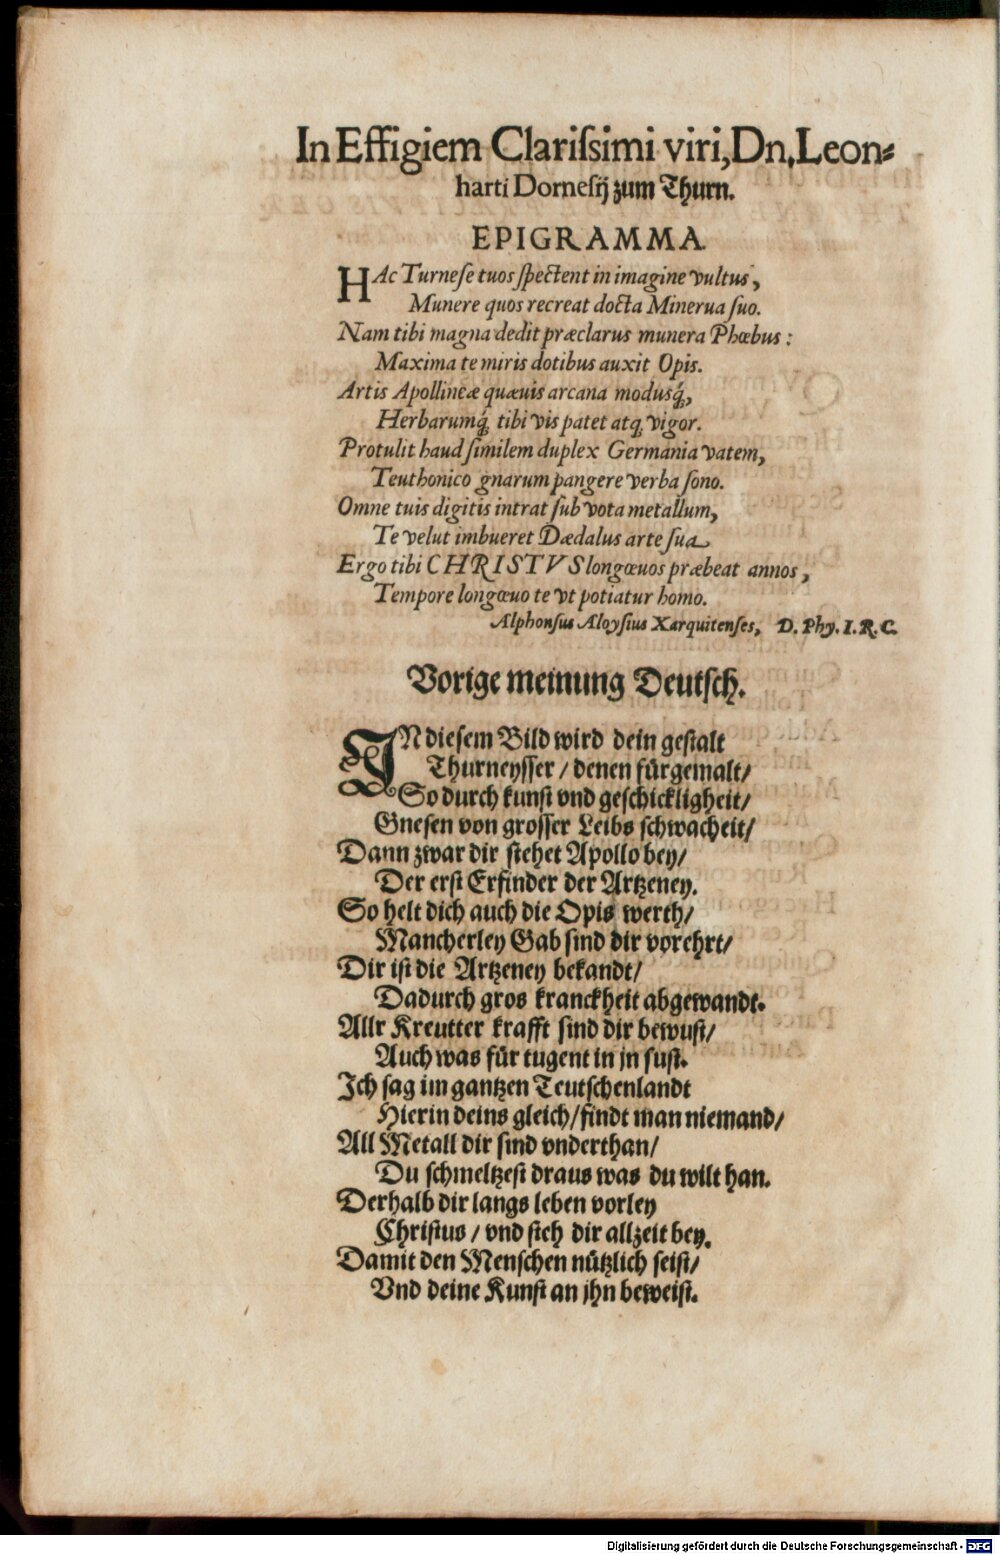 In Effigiem Clariſsimi viri, Dn. Leon⸗
harti Dorneſij zum Thurn.
EPIGRAMMA.
HAc Turneſe tuos ſpectent in imagine vultus,
Munere quos recreat docta Minerua ſuo.
Nam tibi magna dedit præclarus munera Phœbus:
Maxima te miris dotibus auxit Opis.
Artis Apollineæ quæuis arcana modusq́;,
Herbarumq́; tibi vis patet atq; vigor.
Protulit haud ſimilem duplex Germania vatem,
Teuthonico gnarum pangere verba ſono.
Omne tuis digitis intrat ſub vota metallum,
Te velut imbueret Dædalus arte ſua
Ergo tibi CHRISTVS longœuos præbeat annos,
Tempore longœuo te vt potiatur homo.
Alphonſus Aloyſius Xarquitenſes, D. Phy. I. R. C.
Vorige meinung Deutſch.
IN dieſem Bild wird dein geſtalt
Thurneyſſer / denen fürgemalt/
So durch kunſt vnd geſchickligheit/
Gneſen von groſſer Leibs ſchwacheit/
Dann zwar dir ſtehet Apollo bey/
Der erſt Erfinder der Artzeney.
So helt dich auch die Opis werth/
Mancherley Gab ſind dir vorehrt/
Dir iſt die Artzeney bekandt/
Dadurch gros kranckheit abgewandt.
Allr Kreutter krafft ſind dir bewuſt/
Auch was für tugent in jn ſuſt.
Ich ſag im gantzen Teutſchenlandt
Hierin deins gleich/findt man niemand/
All Metall dir ſind vnderthan/
Du ſchmeltzeſt draus was du wilt han.
Derhalb dir langs leben vorley
Chriſtus / vnd ſteh dir allzeit bey.
Damit den Menſchen nützlich ſeiſt/
Vnd deine Kunſt an jhn beweiſt.
Digitalisierung gefördert durch die Deutsche Forschungsgemeinschaft - DFG